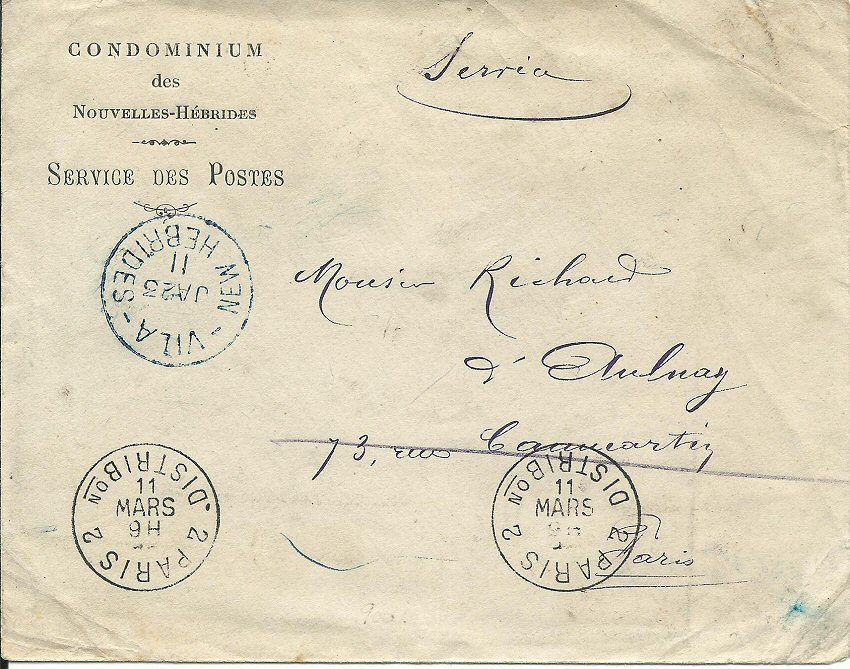 CONDOMINIUM
des
NOUVELLES-HÉBRIDES
SERVICE DES POSTES
Service
NEW HEBRIDES
11
JA 23
- VILA -
Monsieur Richard
d'Aulnay
73, rue Caumartin
Paris
PARIS 2
DISTRIBON
11
MARS
9H
2
PARIS 2
DISTRIBON
11
MARS
2